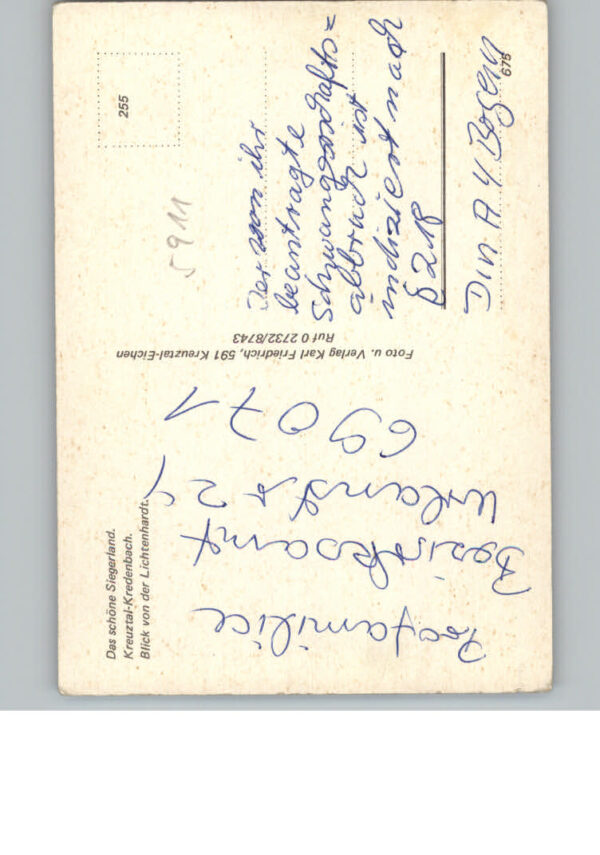 Das schöne Siegerland.
Kreuztal-Kredenbach.
Blick von der Lichtenhardt.
255
5911
Der von ihr
beantragte
Schwangerschafts=
abbruch ist
indiziert nach
§ 218
Din A 4 Bogen
675
Foto u. Verlag Karl Friedrich, 591 Kreuztal-Eichen
Ruf 0 2732/8743
Profamilice
Bezirksamt
24
69071